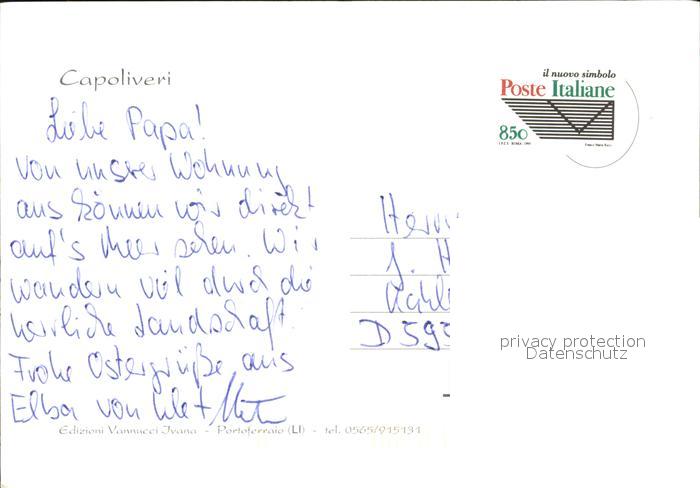 Capoliveri
il nuovo simbolo
Poste Italiane
850
I.P.Z.S. ROMA 1995
Liebe Papa!
von unsrer Wohnung
aus können wir direkt
auf's Meer sehen. Wir
wandern viel durch die
herrliche Landschaft.
Frohe Ostergrüße aus
Elba von
Herrn
J. H
D 593
privacy protection
Datenschutz
Edizioni Vannucci Ivana - Portoferraio (LI) - tel. 0565/915131